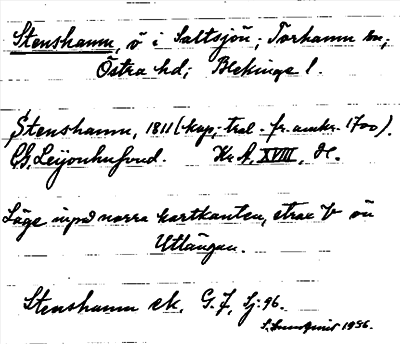 Stenshamn, ö i Saltsjön; Torhamn sn;
Östra hd; Blekinge l.
Stenshamn, 1811 (kop; trol. fr. omkr. 1700).
C.G. Leijonhufvud. Kr. A. XVIII,
Läge invid norra kartkanten, strax V ön
Utlängan.
Stenshamn ek. G. J. Sj: 96.
S. Sundqvist 1956.